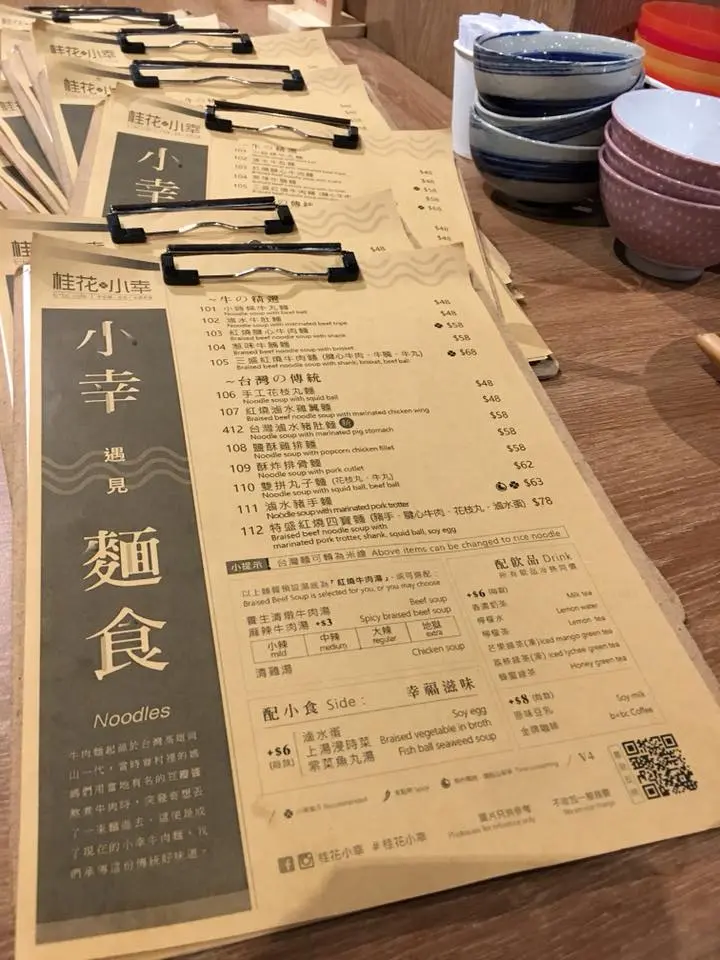 桂花小幸
小幸
遇見
麵食
Noodles
牛肉麵起源於台灣高雄岡
山一代,當時眷村裡的媽
媽們用當地有名的豆瓣醬
熬煮牛肉時,突發奇想丟
了一束麵過去,這便是成
了現在的小幸牛肉麵,我
們承傳這份傳統好味道。
~牛の精選
101 $48
Noodle soup with beef ball
102 滷水牛肚麵 $48
Noodle soup with marinated beef tripe
103 紅燒腱心牛肉麵 $58
Braised beef noodle soup with shank
104 蔥味牛腩麵 $58
Braised beef noodle soup with brisket
105 三盛紅燒牛肉麵 (腱心牛肉、牛腩、牛丸) $68
Braised beef noodle soup with shank, brisket, beef ball
~台灣の傳統
106 手工花枝丸麵 $48
Noodle soup with squid ball
107 紅燒滷水雞翼麵 $48
Braised beef noodle soup with marinated chicken wing
412 台灣滷水豬肚麵 $58
Noodle soup with marinated pig stomach
108 鹽酥雞排麵 $58
Noodle soup with popcorn chicken fillet
109 酥炸排骨麵 $58
Noodle soup with pork cutlet
110 雙拼丸子麵 (花枝丸、牛丸) $62
Noodle soup with squid ball, beef ball
111 滷水豬手麵 $63
Noodle soup with marinated pork trotter
112 特盛紅燒四寶麵 (豬手、腱心牛肉、花枝丸、滷水蛋) $78
Braised beef noodle soup with
marinated pork trotter, shank, squid ball, soy egg
小提示 台灣麵可轉為米線 Above items can be changed to rice noodle
以上麵類預設湯底為「紅燒牛肉湯」,或可選配:
Braised Beef Soup is selected for you, or you may choose
養生清燉牛肉湯 Beef soup
麻辣牛肉湯 +$3 Spicy braised beef soup
小辣 中辣 大辣 地獄
mild medium regular extra
清雞湯 Chicken soup
配飲品 Drink
所有飲品冷熱同價
+$6 (每款)
香濃奶茶 Milk tea
檸檬水 Lemon water
檸檬茶 Lemon tea
芒果綠茶(凍) Iced mango green tea
荔枝綠茶(凍) Iced lychee green tea
蜂蜜綠茶 Honey green tea
+$8 (每款)
原味豆乳 Soy milk
金牌咖啡 b+bc Coffee
配小食 Side: 幸福滋味
+$6 (每款)
滷水蛋 Soy egg
上湯浸時菜 Braised vegetable in broth
紫菜魚丸湯 Fish ball seaweed soup
Recommended Spicy Time consuming / V4
圖片只供參考
Photos are for reference only
不收加一服務費
No service charge
桂花小幸 #桂花小幸